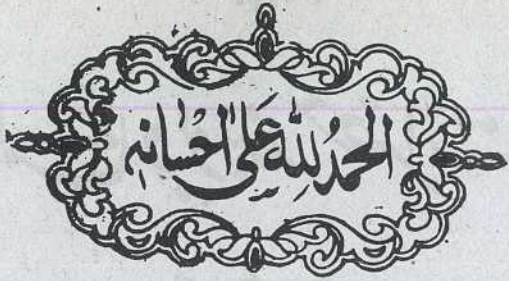 الحمدُ لِلّٰهِ عَلٰى اِحْسَانِهٖ